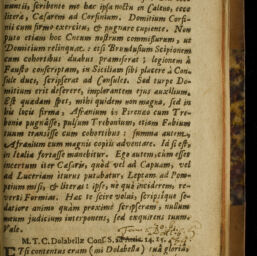 nuntii, scribente me hac ipsa nocte in Caleno, ecce
litera, Cæsarem ad Corfinium. Domitium Corfi-
nii cum firmo exercitu, & pugnare cupiente. Non
puto etiam hoc Cnæum nostrum commissurum, ut
Domitium relinquat: etsi Brundusium Scipionem
cum cohortibus duabus præmiserat; legionem à
Fausto conscriptam, in Siciliam sibi placere à Con-
sule duci, scripserat ad Consules. Sed turpe Do-
mitium erit deserere, implorantem ejus auxilium.
Est quædam spes, mihi quidem non magna, sed in
his locis firma, Afranium in Pirenæo cum Tre-
bonio pugnasse, pulsum Trebonium, etiam Fabium
tuum transisse cum cohortibus: summa autem,
Afranium cum magnis copiis adventare. Id si est,
in Italia fortasse manebitur. Ego autem, cum esset
incertum iter Cæsaris, quòd vel ad Capuam, vel
ad Luceriam iturus putabatur, Leptam ad Pom-
peium misi, & literas: ipse, ne quò inciderem, re-
verti Formias. Hæc te scire volui, scripsique se-
datiore animo quàm proximè scripseram, nullum
meum judicium interponens, sed exquirens tuum.
Vale.
M. T. C. Dolabellæ Cons. S. 14. 15.
ETsi contentus eram (mi Dolabella) tua gloria,